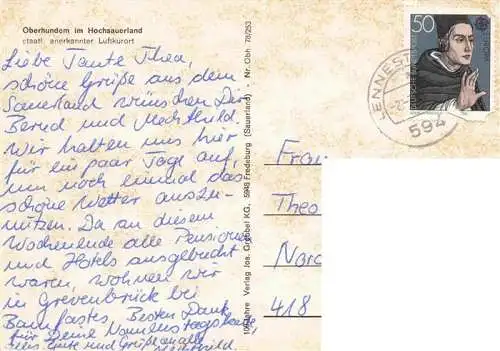 Oberhundem im Hochsauerland
staatl. anerkannter Luftkurort
Liebe Tante Thea,
schöne Grüße aus dem
Sauerland wünschen Dir
Bernd und Mechthild.
Wir halten uns hier
für ein paar Tage auf,
um noch einmal das
schöne Wetter auszu-
nutzen. Da an diesem
Wochenende alle Pensionen
und Hotels ausgebucht
waren, wohnen wir
in Grevenbrück bei
Baumfastes. Besten Dank
für Deine Namenstagskarte,
alles Gute und Grüße an alle
Mechthild
100 Jahre Verlag Jos. Grobbel KG, 5948 Fredeburg (Sauerland) - Nr. Obh 78/253
50
DEUTSCHE BUNDESPOST
LENNES
594
Frau
Theo
Nord
418